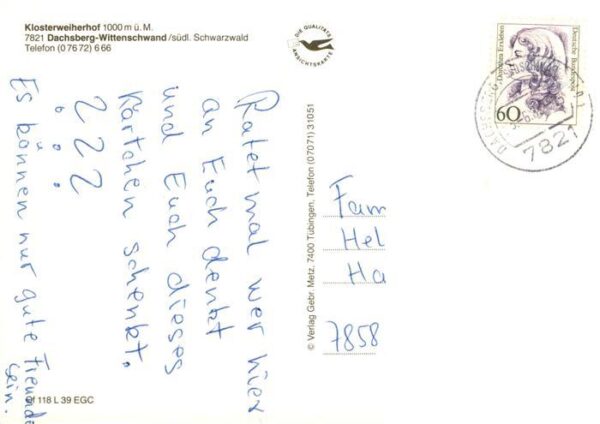 Klosterweiherhof 1000 m ü. M.
7821 Dachsberg-Wittenschwand /südl. Schwarzwald
Telefon (0 76 72) 6 66
DIE QUALITÄTS
ANSICHTSKARTE
Ratet mal wer hier
an Euch denkt
und Euch dieses
Kärtchen schenkt.
? ? ?
Es können nur gute Freunde
sein.
© Verlag Gebr. Metz, 7400 Tübingen, Telefon (07071) 31051
118 L 39 EGC
Deutsche Bundespost
Dorothea Erxleben
60
7821
Fam
Hel
Ha
7858